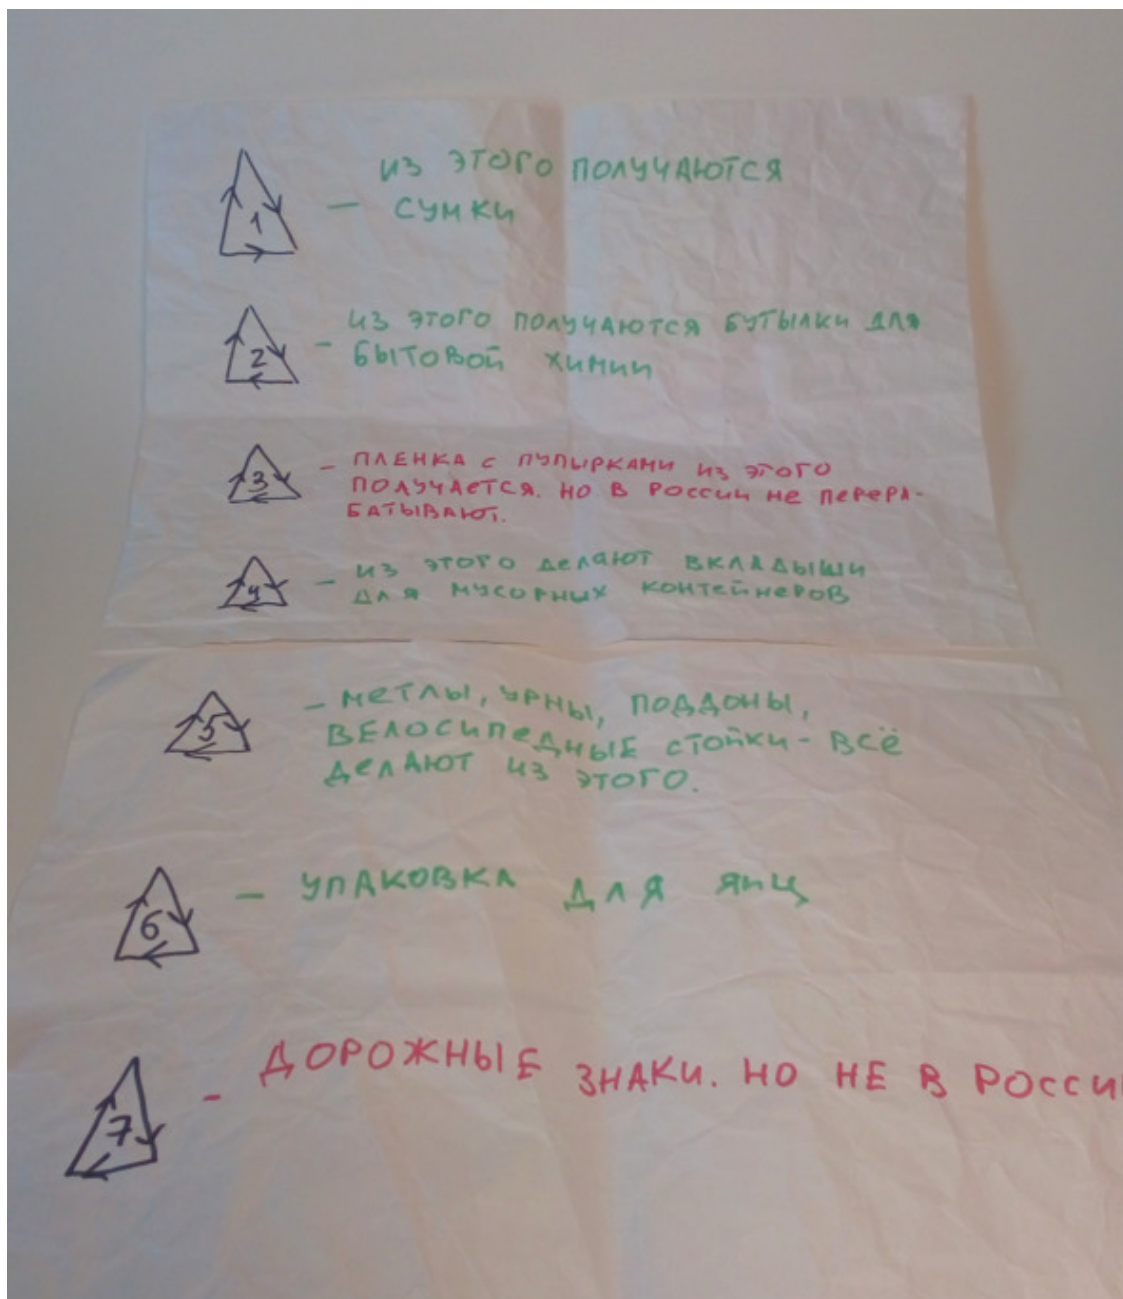 ИЗ ЭТОГО ПОЛУЧАЮТСЯ
1 — СУМКИ
ИЗ ЭТОГО ПОЛУЧАЮТСЯ БУТЫЛКИ ДЛЯ
2 - БЫТОВОЙ ХИМИИ
3 - ПЛЕНКА С ПУПЫРКАМИ ИЗ ЭТОГО
ПОЛУЧАЕТСЯ. НО В РОССИИ НЕ ПЕРЕРА-
БАТЫВАЮТ.
4 - ИЗ ЭТОГО ДЕЛАЮТ ВКЛАДЫШИ
ДЛЯ МУСОРНЫХ КОНТЕЙНЕРОВ
5 - МЕТЛЫ, УРНЫ, ПОДДОНЫ,
ВЕЛОСИПЕДНЫЕ СТОЙКИ - ВСЁ
ДЕЛАЮТ ИЗ ЭТОГО.
6 - УПАКОВКА ДЛЯ ЯИЦ
7 - ДОРОЖНЫЕ ЗНАКИ. НО НЕ В РОССИИ